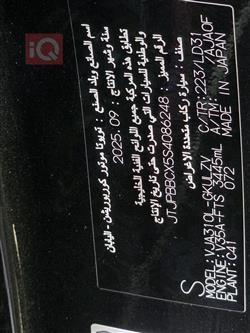 اسم الصانع وبلد الصنع : تويوتا موتور كوربوريشن - اليابان
سنة وشهر الإنتاج : 2025.09
تطابق هذه المركبة جميع اللوائح الفنية الخليجية
والوطنية للسيارات التي صدرت حتى تاريخ الإنتاج
الرقم المميز : JTJPBBCX5S4086248
صنف : سيارة ركاب متعددة الأغراض
C/TR: 223/LD31
A/TR: A/JA0F
MADE IN JAPAN
S
MODEL: VJA310L-GKULZV
ENGINE: V35A-FTS 3445mL
PLANT: C41 072
IQ